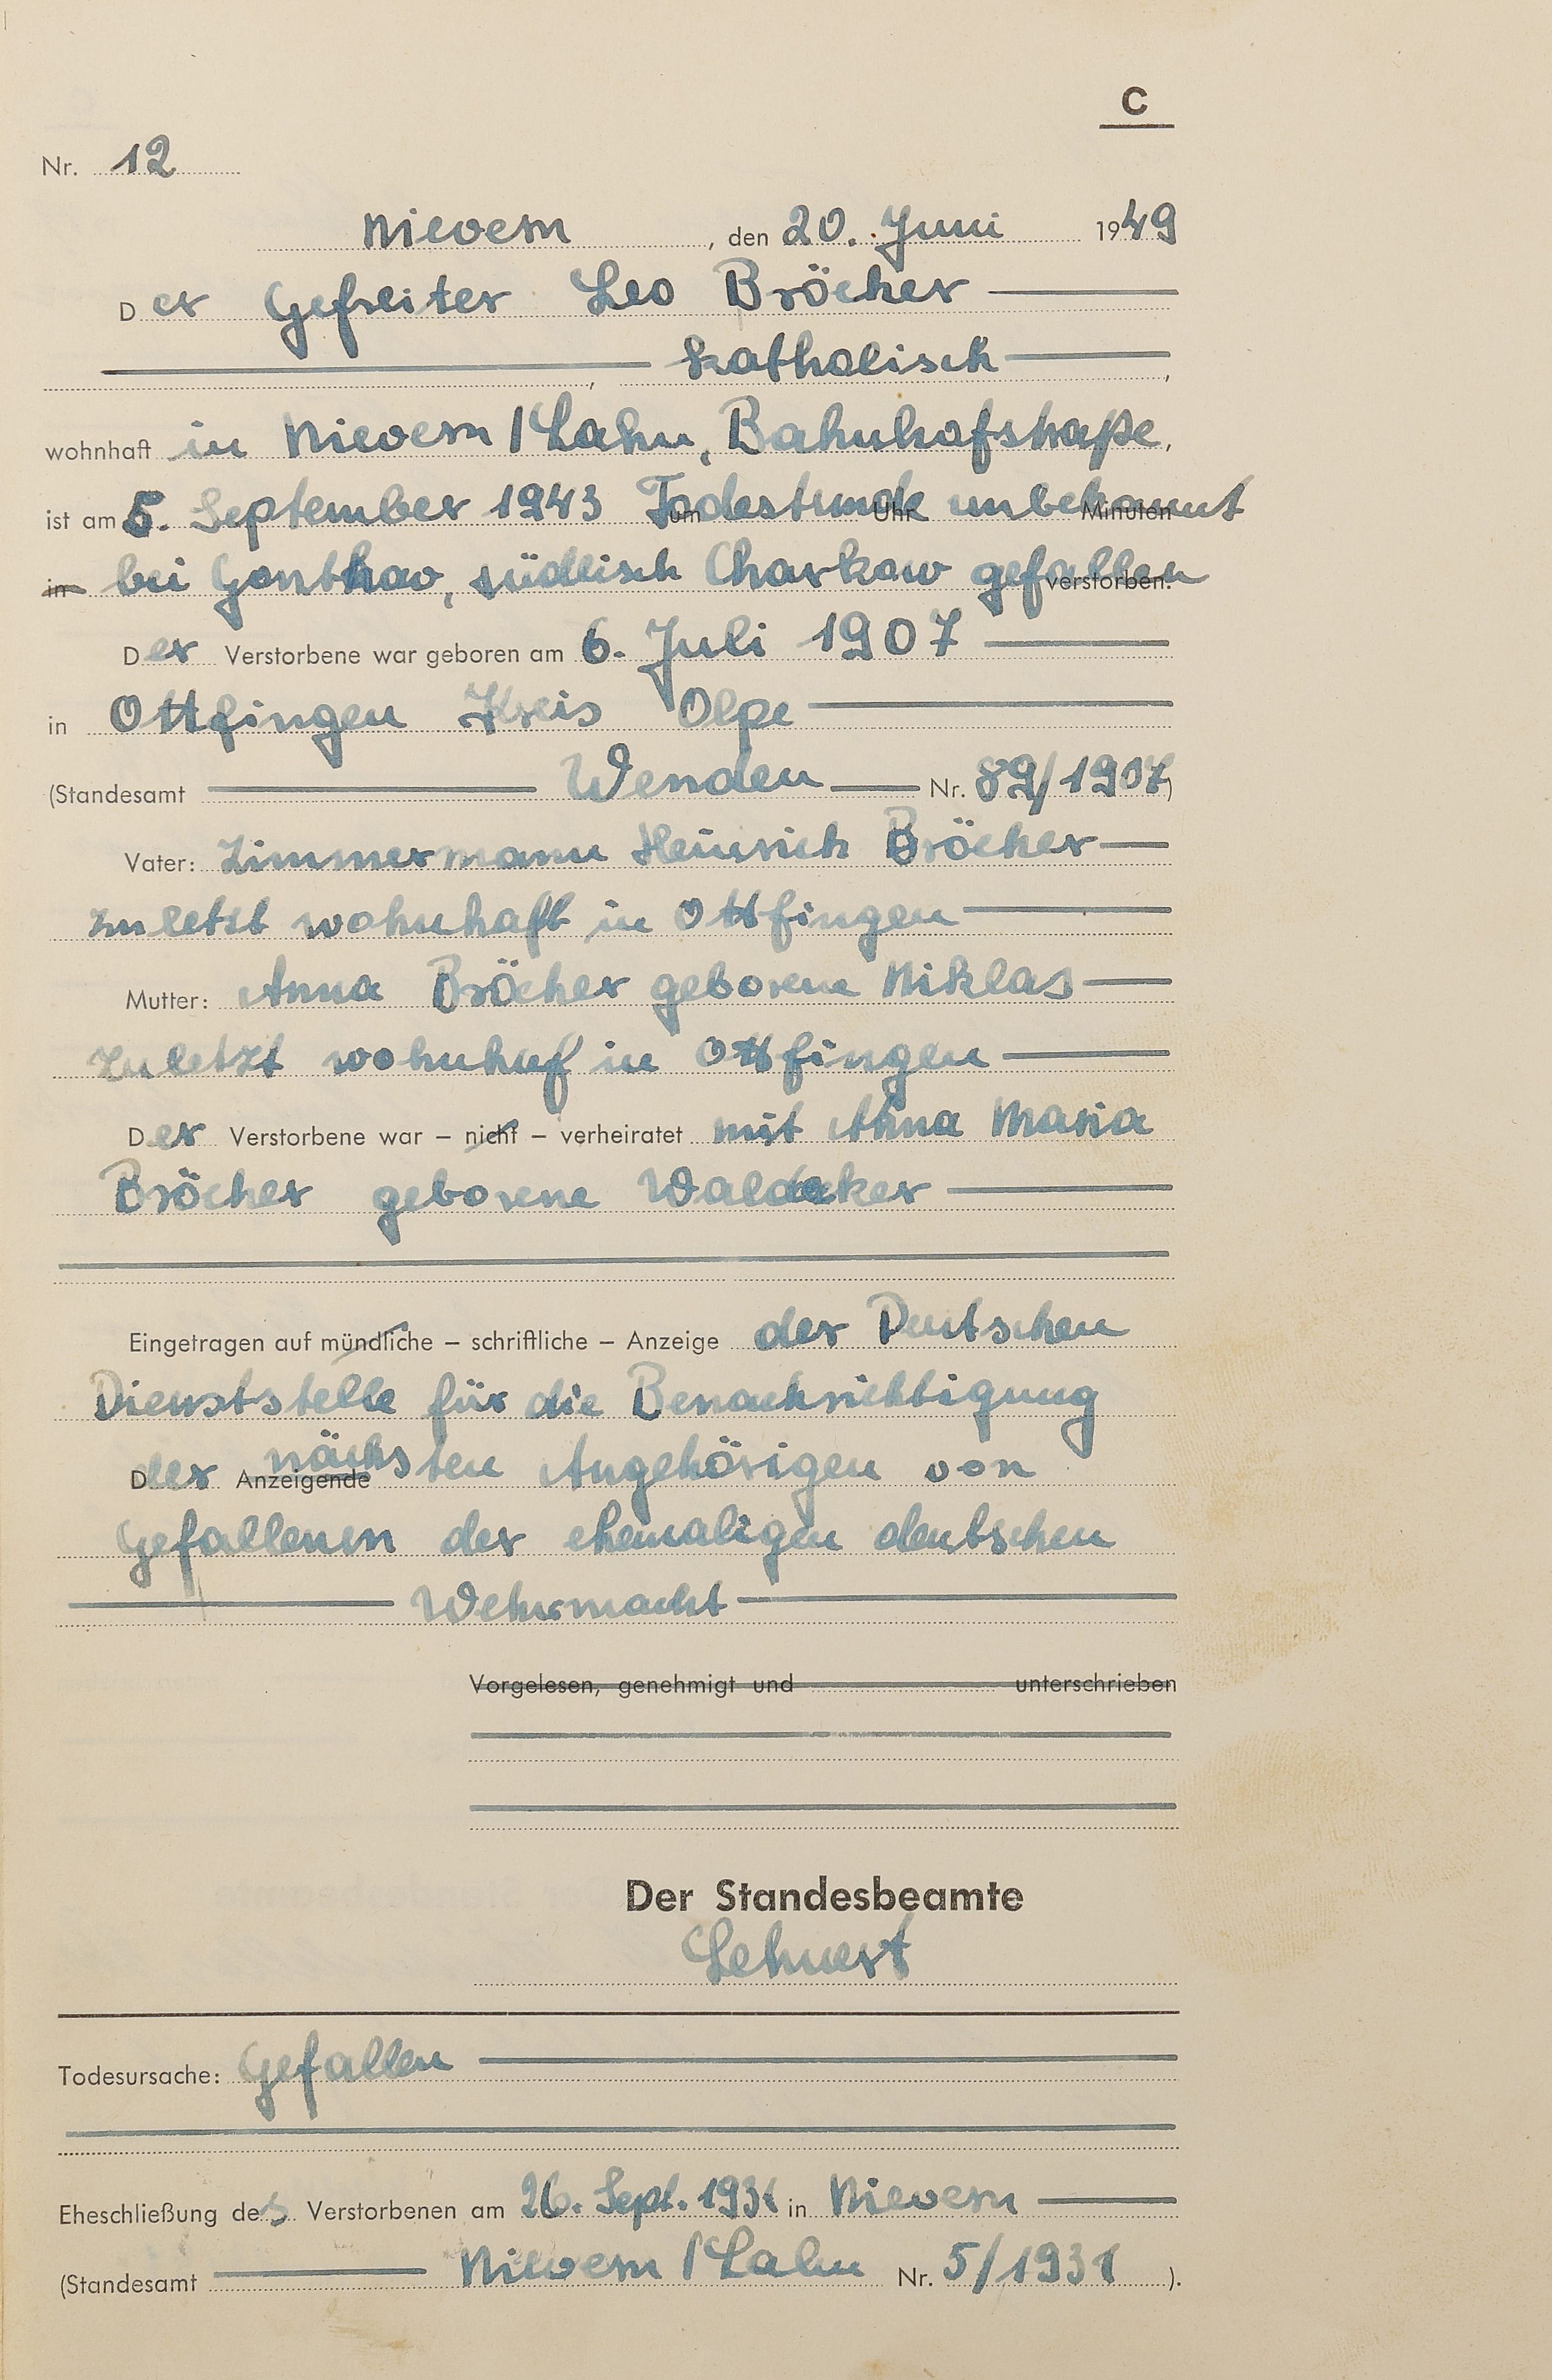 C
Nr. 12
Nievern, den 20. Juni 1949
Der Gefreiter Leo Bröcher
katholisch,
wohnhaft in Nievern / Lahn, Bahnhofstraße,
ist am 5. September 1943 um Todestunde Uhr unbekannt Minuten
in bei südlisch Charkow gefallen verstorben.
Der Verstorbene war geboren am 6. Juli 1907
in Ottfingen Kreis Olpe
(Standesamt Wenden Nr. 89/1907)
Vater: Zimmermann Heinrich Bröcher
zuletzt wohnhaft in Ottfingen
Mutter: Anna Bröcher geborene Niklas
zuletzt wohnhaf in Ottfingen
Der Verstorbene war – nicht – verheiratet mit Anna Maria
Bröcher geborene
Eingetragen auf mündliche – schriftliche – Anzeige der Deutschen
Dienststelle für die Benachrichtigung
Der Anzeigende nächsten Angehörigen von
Gefallenen der ehemaligen deutschen
Wehrmacht
Vorgelesen, genehmigt und unterschrieben
Der Standesbeamte
Lehnert
Todesursache: Gefallen
Eheschließung des Verstorbenen am 26. Sept. 1931 in Nievern
(Standesamt Nievern / Lahn Nr. 5/1931).